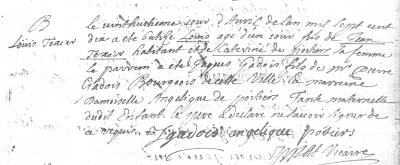 B
Louis Texier
Le vinthuitieme jour d'Avril de lan mil sept cent
dix a été batisé Louis agé d'un jour fils de Jean
Texier habitant et de Caterine de poitiers sa femme
le parrein a été Jaques Gadois fils de mr pierre
Gadois Bourgeois de cette Ville la marreine
Damoiselle Angelique de poitiers Tante maternelle
dudit Enfant. le pere declaré ne savoir signer de
ce requis. Jgadois angelique poitiers
priat Vicaire